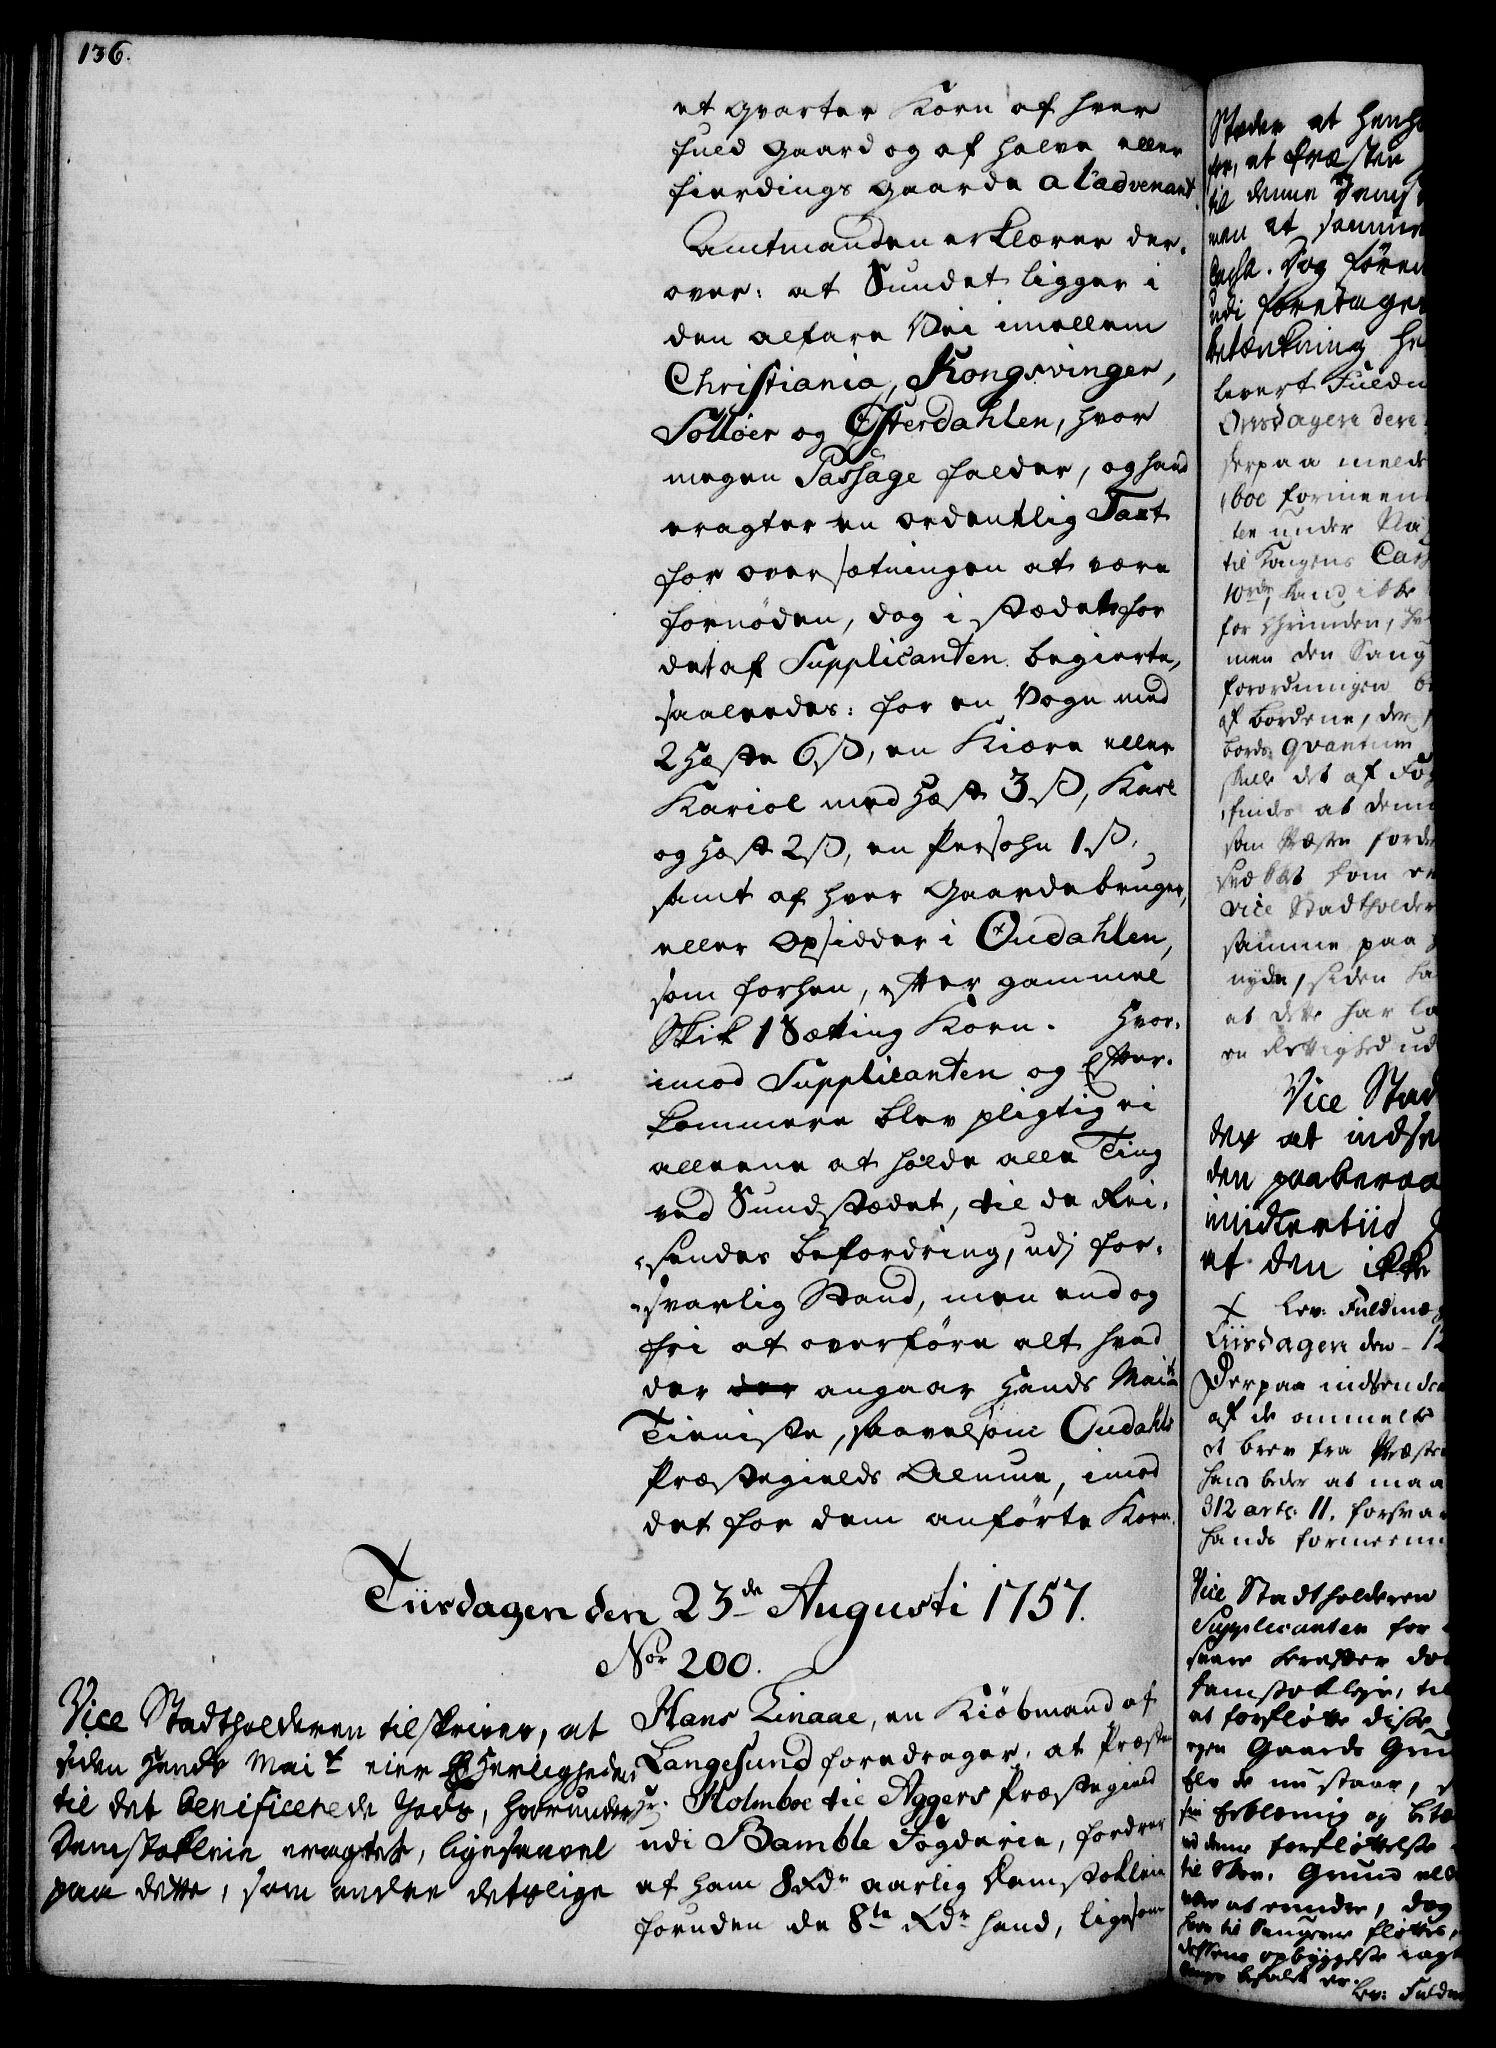 136.
et qvarter Korn af hver
fuld Gaard og af halve eller
fierdings Gaarde a l'advenant.
Amtmanden erklærer der-
over: at Sundet ligger i
den alfare Vei imellem
Christiania, Kongsvinger,
Solløer og Østerdahlen, hvor
megen Passage falder, og hand
eragter en ordentlig Taxt
for oversætningen at være
fornøden, dog i stædet for
det af Supplicanten begierte,
saaleedes: for en Vogn med
2 Hæste 6 ß, en Kiære eller
Kariol med Hæst 3 ß, Karl
og Hæst 2 ß, en Persohn 1 ß,
samt af hver Gaardebruger,
eller Opsidder i Oudahlen,
som forhen, efter gammel
Skik 1 Sætting Korn. Hvor-
imod Supplicanten og Efter-
kommere blev pligtig ei
alleene at holde alle Ting
ved Sundstædet, til de Rei-
sendes befordring, udj for-
svarlig Stand, men end og
fri at overføre alt hvad
der angaar Hands Maits
Tieniste, saavelsom Oudahls
Præstegields Almue, imod
det for dem anførte Korn.
Tiirsdagen den 23de Augusti 1757.
Nor 200.
Vice Stadtholderen tilskriver, at
siden Hands Mait eier Herligheden
til det beneficerede Gods, hvorunder
Damstokleie eragtes, ligesaavel
paa dette, som andre deslige
Hans Linaae, en Kiöbmand af
Langesund foredrager, at Præsten
Hr. Holmboe til Aggers Præstegield
udi Bamble Fogderie, fordrer
af ham 8 Rdr aarlig Damstokleie
foruden de 8te Rdr hand, ligesom
Steder at henh
for, at Præsten
til denne
men at samme
Dog føren
udi foretagen
betænkning he
levert Fuldm
Onsdagen den
Derpaa melde
boe formeen
ten under
til Kongens Cass
10rdr, kand ikke
for Grunden, hv
men den Saug
forordningen
af bordene, der
bords Qvantum
skulle det af Fog
findes at denne
som Præsten fordr
som en
Vice Stadtholder
samme paa
nyde, siden ha
at dette har
en Rettighed ud
Vice Stad
der at indse
den paaberaa
imidlertiid
at den ikke
Lev: Fuldmæg
Tiirsdagen den 12
Derpaa indsende
af de anmelte
et brev fra Præsten
hand beder at maa
312 art: 11. forsva
hands formeen
Vice Stadtholderen
Supplicanten for
Damstokleje, til
at forfløtte disse
egen Gaards Gru
de nu staar,
og
denne forfløttelse
til Grund
dog
til Saugene fløttes,
dessens opbyggelse iagt
befalet er.
Lev: Fuldm